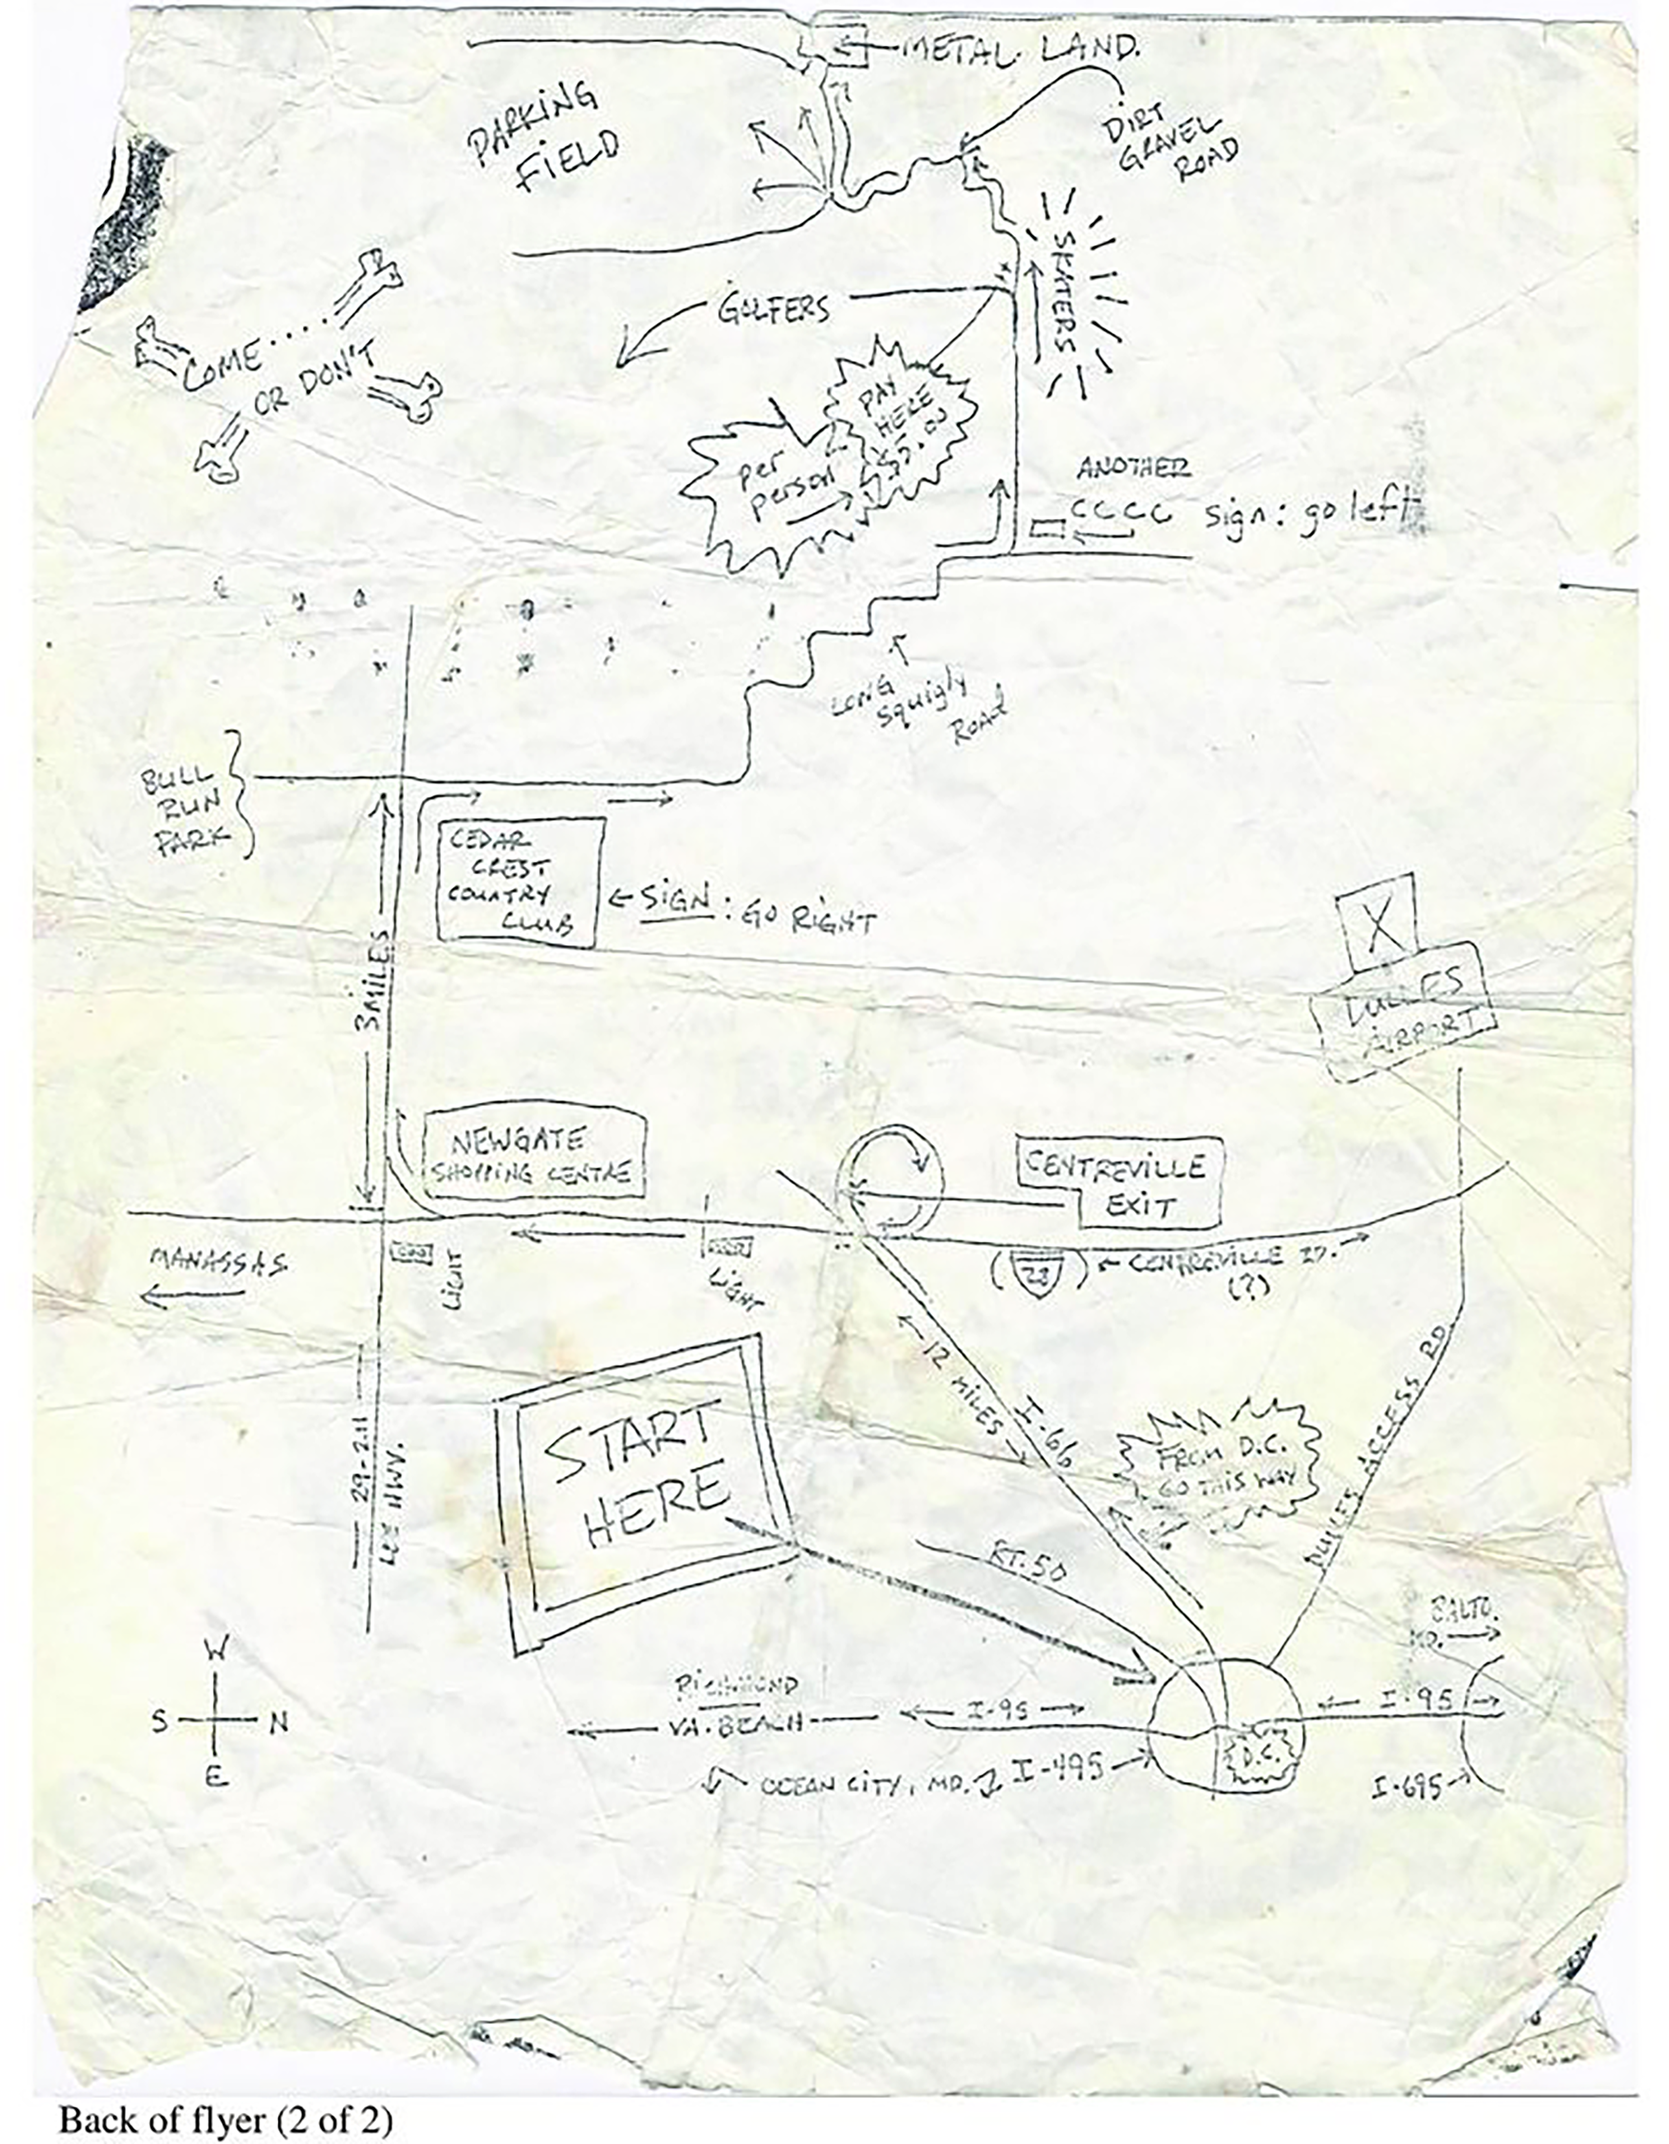 METAL LAND.
PARKING
FIELD
DIRT
GRAVEL
ROAD
SKATERS
GOLFERS
COME....
OR DON'T
PAY
HERE
$5.00
per
person
ANOTHER
CCCC sign: go left
LONG
Squigly
Road
BULL
RUN
PARK
CEDAR
CREST
COUNTRY
CLUB
SIGN: GO RIGHT
3 MILES
X
DULLES
AIRPORT
NEWGATE
SHOPPING CENTRE
CENTREVILLE
EXIT
MANASSAS
LIGHT
LIGHT
(28) CENTREVILLE RD.
(?)
12 MILES
I-66
START
HERE
FROM D.C.
GO THIS WAY
DULLES ACCESS RD.
29-211
LEE HWY.
RT. 50
BALTO.
MD.
W
S N
E
RICHMOND
VA. BEACH
I-95
I-95
D.C.
OCEAN CITY, MD.
I-495
I-695
Back of flyer (2 of 2)